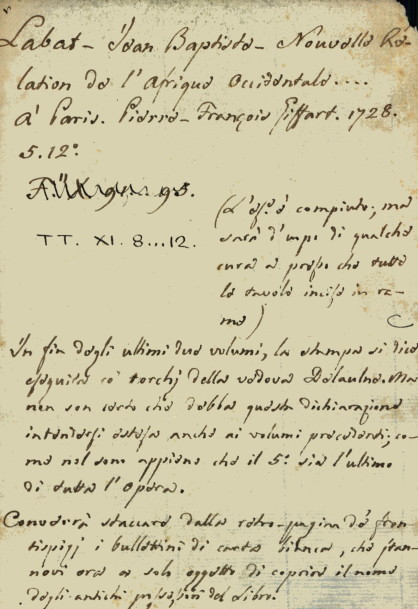 Labat - Jean Baptiste - Nouvelle Re-
lation de l'Afrique Occidentale....
A Paris. Pierre-François Giffart. 1728.
5. 12°.
95.
TT. XI. 8...12.
(L'es.e è compiuto; ma
sarà d'uopo di qualche
cura a proposito che tutte
le tavole incise in ra-
me)
In fin degli ultimi due volumi, la stampa si dice
eseguita co' torchj della vedova Delaulne. Ma
non son certo che debba questa dichiarazione
intendersi estesa anche ai volumi precedenti; co-
me nol sono appieno che il 5.° sia l'ultimo
di tutta l'Opera.
Converrà staccare dalla retro-pagina de' fron-
tispizj i bullettini di carta bianca, che stan-
novi ora a solo oggetto di coprire il nome
degli antichi possessori del Libro.